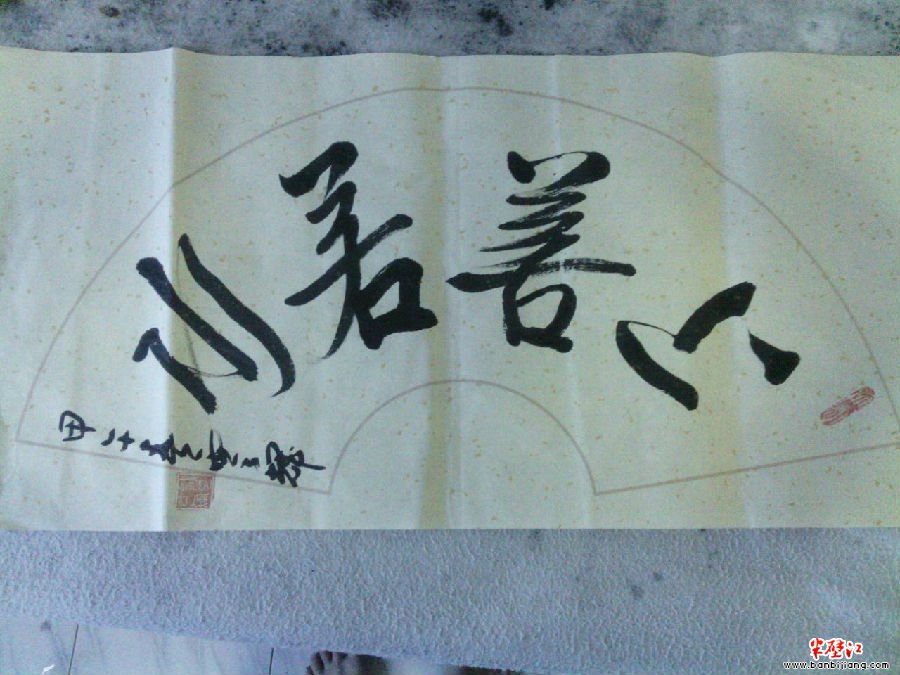 上善若水
甲午春
半壁江
www.banbijiang.com